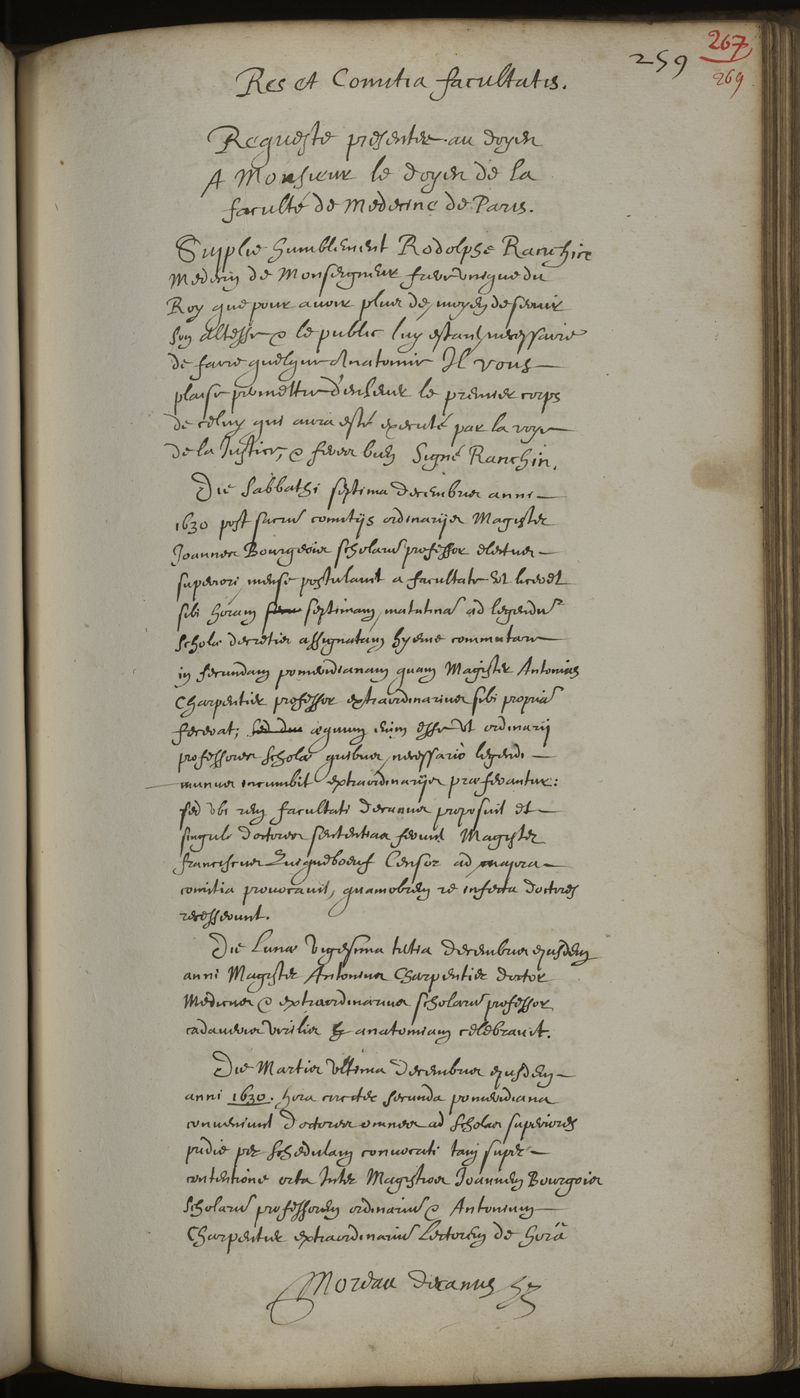 259
267
269
Res et Comitia facultatis.
Requeste presentée au doyen
A Monsieur le doyen de la
faculté de Medecine de Paris.
Suplie humblement Rodolphe Ranchin
Medecin de Monseigneur frere unique du
Roy que pour avoir plus de moyen de servir
son Altesse & le public luy estant necessaire
de faire quelque Anatomie Il vous
plaise permettre d'enlever le premier corps
de celuy qui aura esté executé par la voye
de la Justice, & ferez bien Signé Ranchin.
Die Sabbathi septima decembris anni
1630 post sacrū comitijs ordinarijs Magister
Joannes Bourgeois scholarū professor electus
superiori mense postulavit a facultate ut liceret
sibi horam septimam matutinā ad legendū
scholæ decretis assignatam hyeme commutare
in secundam pomeridianam quam Magister Antonius
Charpentier professor extraordinarius sibi propriā
fecerat; sed æquum enim esse ut ordinarij
professores scholæ quibus necessariò legendi
munus incumbit extraordinarijs præferantur:
sed ubi rem facultati decanus proposuit et
singuli doctores sententias ferunt Magister
franciscus Quiqueboeuf Censor ad majora
comitia provocavit, quamobrem re infecta doctores
recesserunt.
Die Lunæ vigesima tertia decembris ejusdem
anni Magister Antonius Charpentier doctor
Medicus & extraordinarius scholarū professor
cadaveris virilis anatomiam celebravit.
Die Martis ultima decembris ejusdem
anni 1630. hora circiter secunda pomeridiana
convenerunt doctores omnes ad scholas superiores
pridie per schedulam convocati tam super
contentione orta Inter Magistros Joannem Bourgeois
scholarū professorem ordinariū & Antonium
Charpentier extraordinariū Lectorem de horā
Moreau decanus